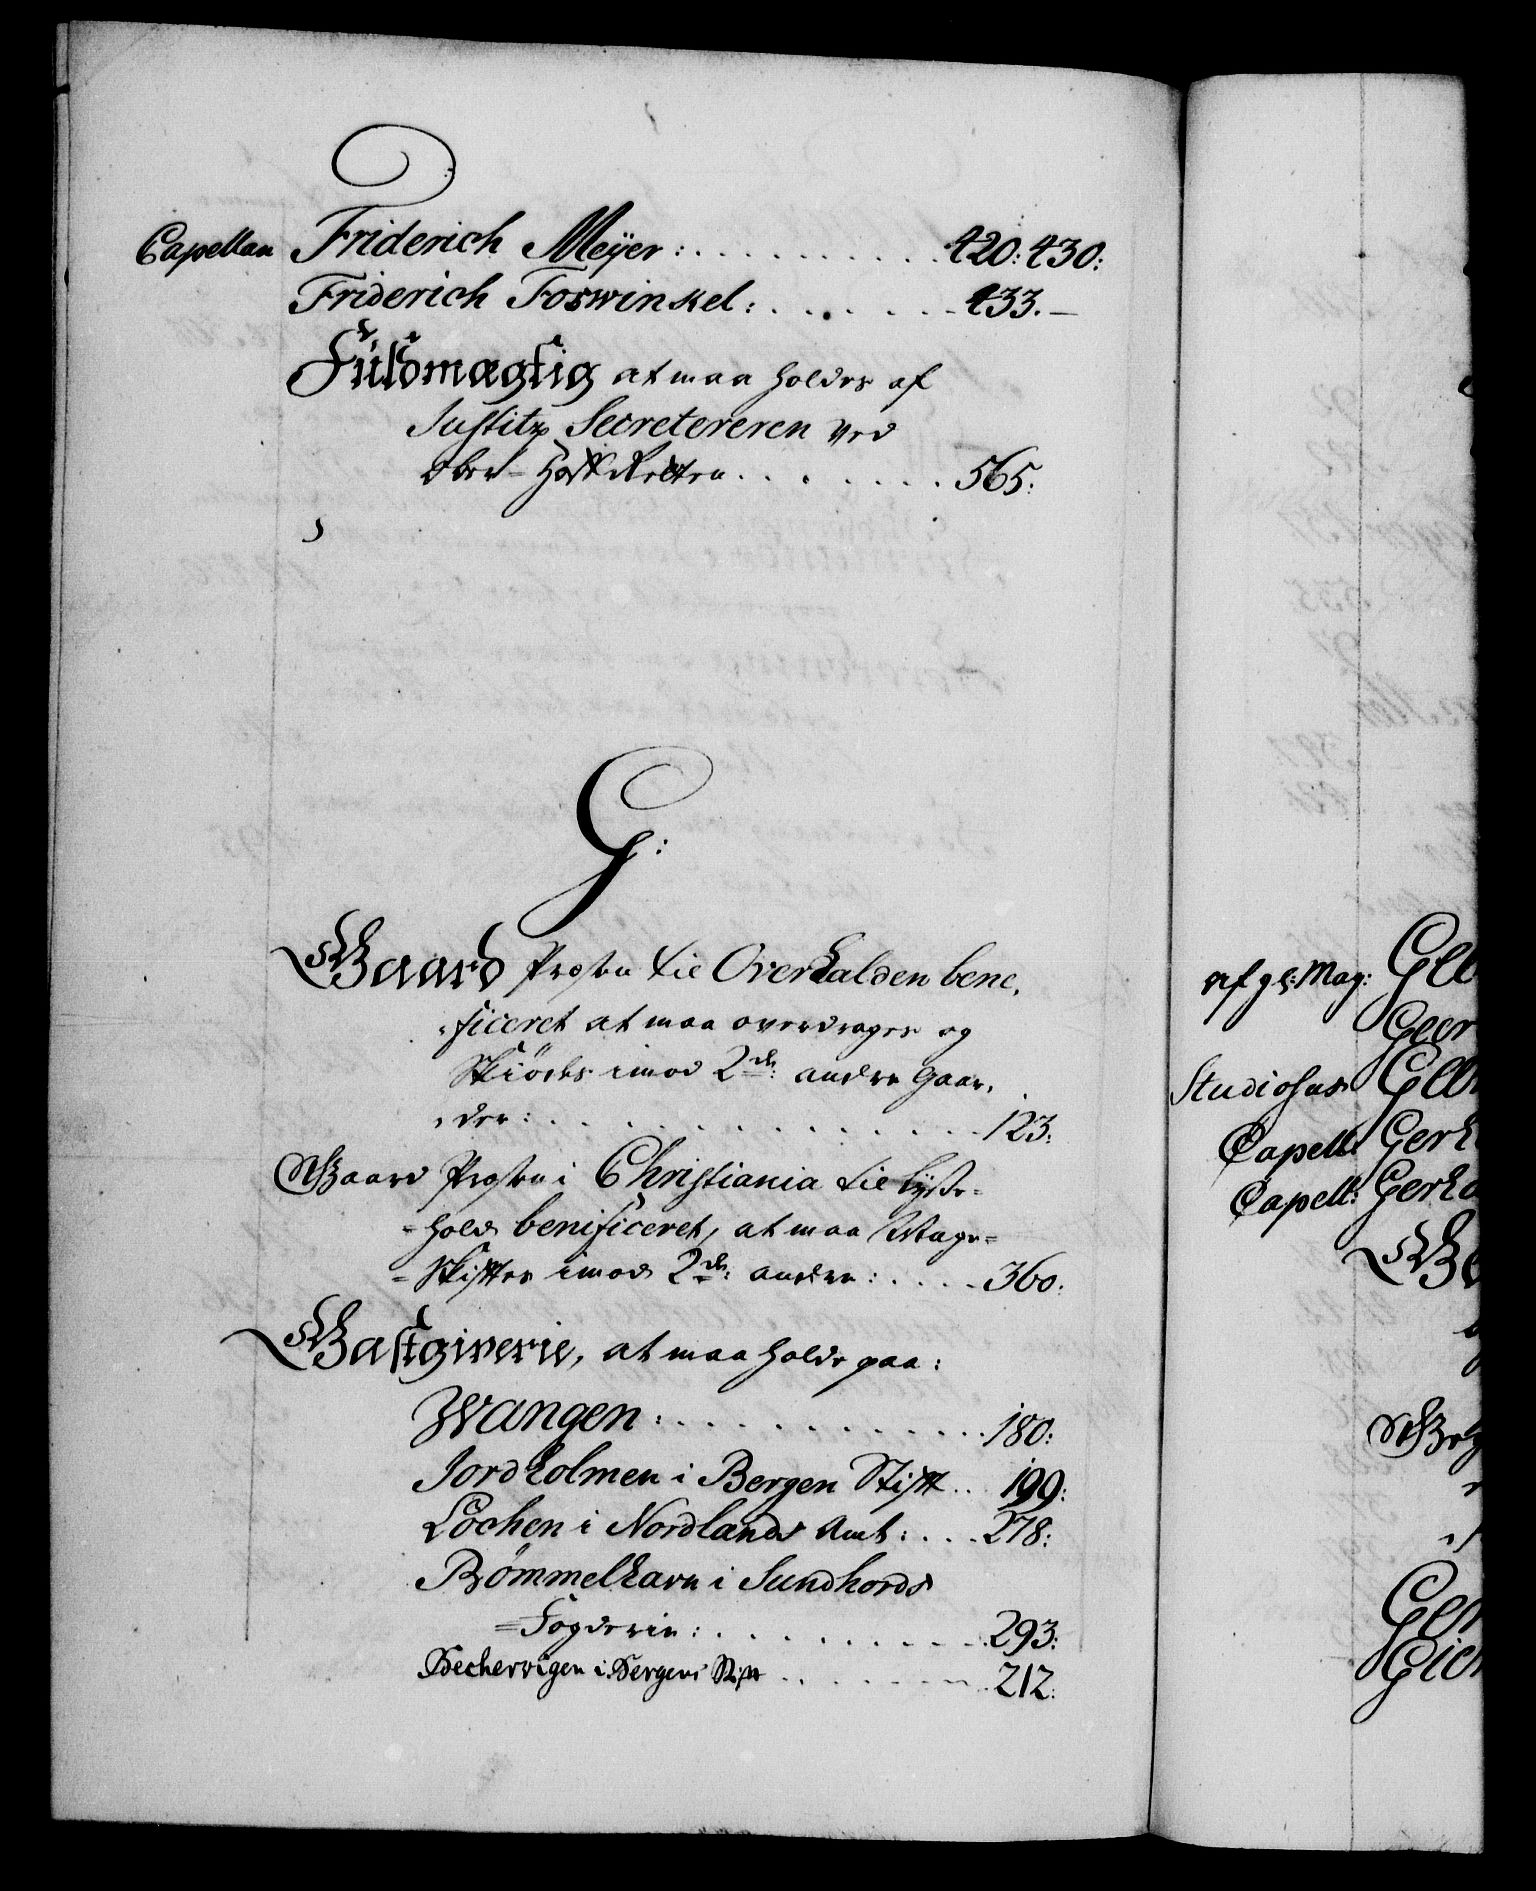 Capellan Friderich Meÿer: . . . . . . . . . . 420: 430:
Friderich Foswinkel: . . . . . . 433. —
Fuldmægtig at maa holdes af
Justitz Secretereren ved
Ober-Hoff Retten . . . . . . . 565:
G:
Gaard Præsten til Overhalden bene,
,ficeret at maa overdrages og
Skiödes imod 2de: andre Gaar,
,der: . . . . . . . . . . . . . 123:
Gaard Præsten i Christiania til
=hold benificeret, at maa Mage=
=Skiftes imod 2de: andre: . . . . 360:
Gastgiverie, at maa holde paa:
Zvangen: . . . . . . . . . . . 180:
Jordholmen i Bergen Stift . . 199:
Lochen i Nordlands Amt: . . . 278:
Bömmelhavn i Sundhords
=Fogderie: . . . . . . . . . 293:
Bechervigen i Bergens Stift . . . . . . . 212:
af gl: Mag: Gll
Geor
Studiosus
Capell: Gerh
Capell: Gerha